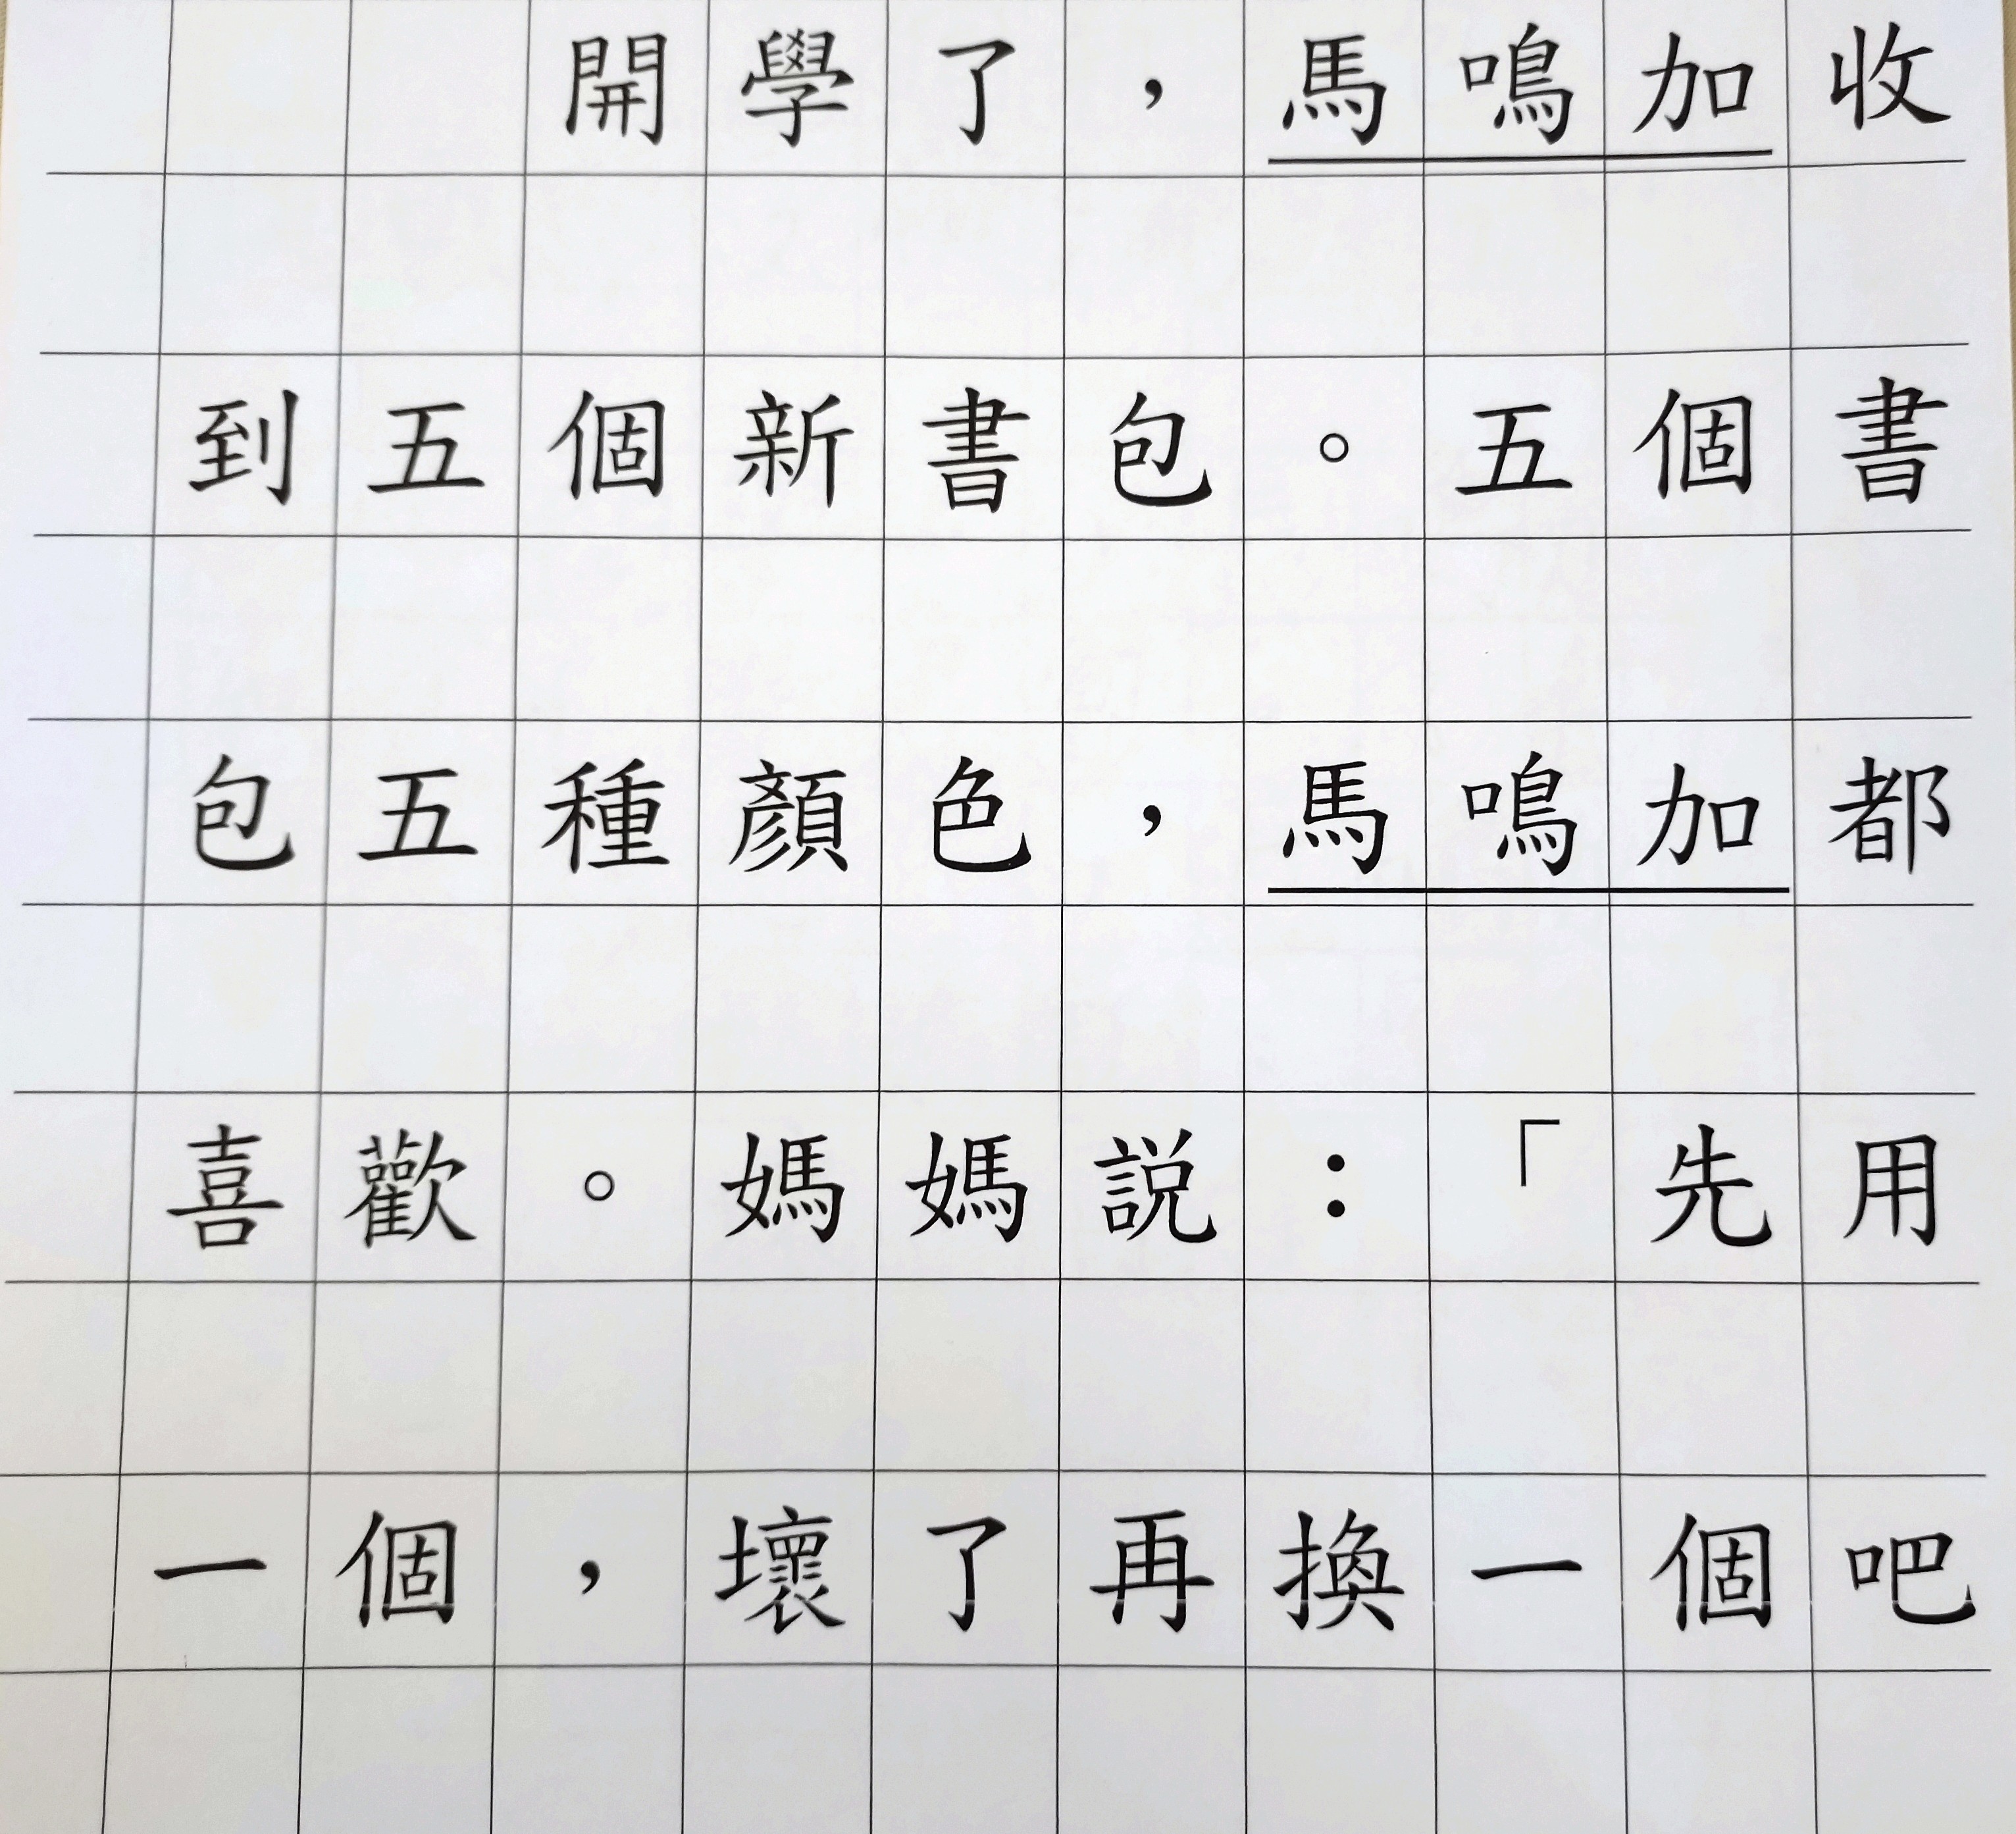 開學了，馬鳴加收
到五個新書包。五個書
包五種顏色，馬鳴加都
喜歡。媽媽説：「先用
一個，壞了再換一個吧